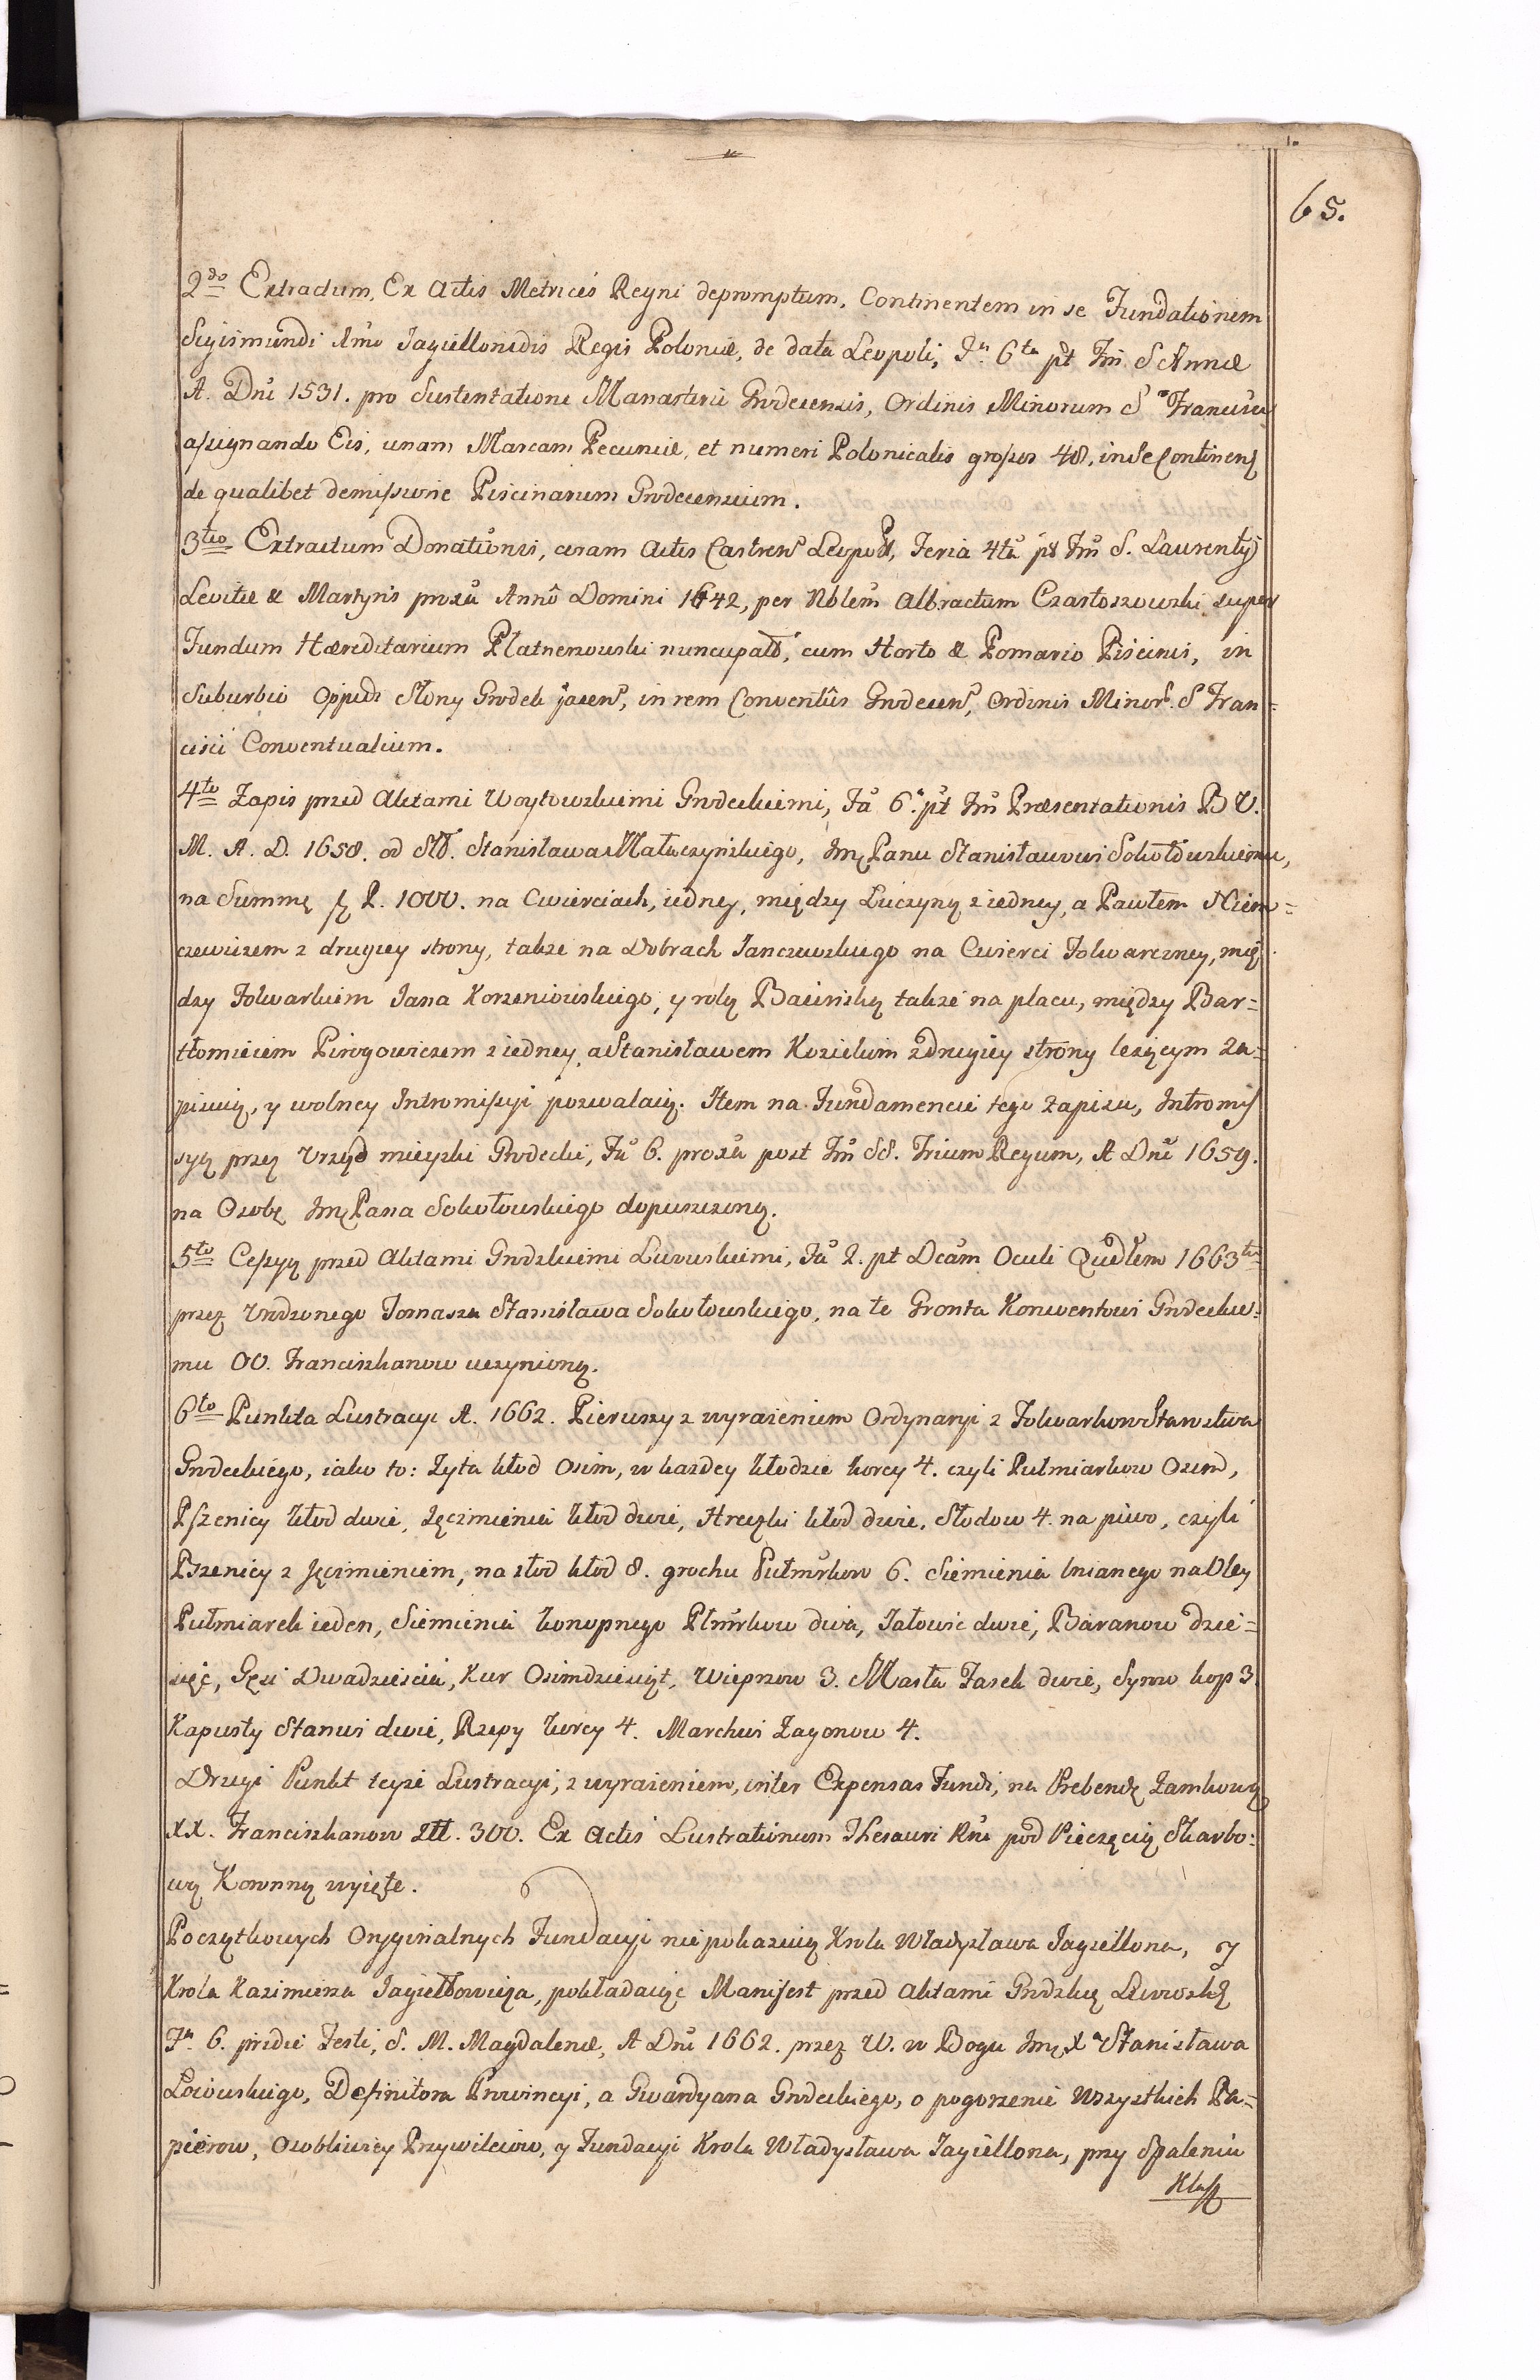 65.
2do Extractum, Ex Actis Metrices Regni depromptum, Continentem in se Fundationem
Sigismundi Imo Jagiellonidis Regis Poloniæ, de data Leopoli, Fa 6ta pt Fm S Annæ
A. Dni 1531. pro Sustentatione Manasterii Grodecensis, Ordinis Minorum S Francisci
assignando Eis, unam Marcam Pecuniæ, et numeri Polonicalis grosses 48, in se Continen
de qualibet demissione Piscinarum Grodecensium.
3tio Extractum Donationis, coram Actis Castren Leopol, Feria 4ta pt Fm S. Laurentÿ
Levitæ & Martyris proxa Anno Domini 1642, per Nblem Albractum Czartoszowski super
Fundum Hæreditarium Płatnerowski nuncupat, cum Horto & Pomario Piscinis, in
Suburbio Oppidi Słony Grodek jacen, in rem Conventûs Grodecen, Ordinis Minor. S Fran=
cisci Conventualium.
4to Zapis przed Aktami Woytowskiemi Grodeckiemi, Fa 6. pt Fm Præsentationis B V.
M. A. D. 1658. od Sł. Stanisława Małaczyńskiego, Jmę Panu Stanisławowi Sokołowskiemu,
na Summę P. 1000. na Cwierciach, iedney, między Luczyną z iedney, a Pawłem Niem=
czewiczem z drugiey strony, także na Dobrach Janczewskiego na Cwierci Folwarczney, mię
dzy Folwarkiem Jana Korzeniowskiego, y rolą Bacińską także na placu, między Bar=
tłomieiem Pirogowiczem z iedney, a Stanisławem Kozielum z drugiey strony leżącym za=
pisuią, y wolney Intromissyi pozwalaią. Item na Fundamencie tego Zapisu, Intromis
syą przez Urząd mieyski Grodecki, Fa 6. proxa post Fm SS. Trium Regum, A Dni 1659.
na Osobę Jmę Pana Sokołowskiego dopuszczoną.
5to Cessyą przed Aktami Grodzkiemi Lwowskiemi, Fa 2. pt Dcam Oculi Qudłem 1663tio
przez Urodzonego Tomasza Stanisława Sokołowskiego, na te Gronta Konwentowi Grodeckie=
mu OO. Franciszkanow uczynioną.
6to Punkta Lustracyi A. 1662. Pierwszy z wyrażeniem Ordynaryi z Folwarkow Starostwa
Grodeckiego, iako to: Zyta kłod Osim, w kazdey kłodzie korcy 4. czyli Pułmiarkow Osim,
Pszenicy kłod dwie, Jęczmienia kłod dwie, Hreczki kłod dwie, Słodow 4. na piwo, czyli
Pszenicy z Jęczmieniem, na słod kłod 8. grochu Pułmrkow 6. Siemienia lnianego na Oley
Pułmiarek ieden, Siemienia konopnego Płmrkow dwa, Jałowic dwie, Baranow dzie=
sięć, Gęsi Dwadzieścia, Kur Osimdziesiąt, Wieprzow 3. Masła Fasek dwie, Syrow kop 3
Kapusty Stanwi dwie, Rzepy korcy 4. Marchwi Zagonow 4.
Drugi Punkt teyże Lustracyi, z wyrażeniem, inter Expensas Fundi, na Prebendę Zamkową
XX. Franciszkanow Złł. 300. Ex Actis Lustrationum Thesauri Rni pod Pieczęcią Skarbo=
wą Koronną wyięte.
Początkowych Oryginalnych Fundacyi nie pokazuią Krola Władysława Jagiellona, y
Krola Kazimierza Jagiełłowicza, pokładaiąc Manifest przed Aktami Grodzkię Lwowskę
Fa 6. pridie Festi, S. M. Magdalenæ, A Dni 1662. przez W. w Bogu Jmę Xa Stanisława
Łociowskiego, Definitora Prowincyi, a Gwardyana Grodeckiego, o pogorzenie Wszystkich Pa=
pierow, Osobliwiey Przywileiow, y Fundacyi Krola Władysława Jagiellona, przy Spaleniu
Klasz